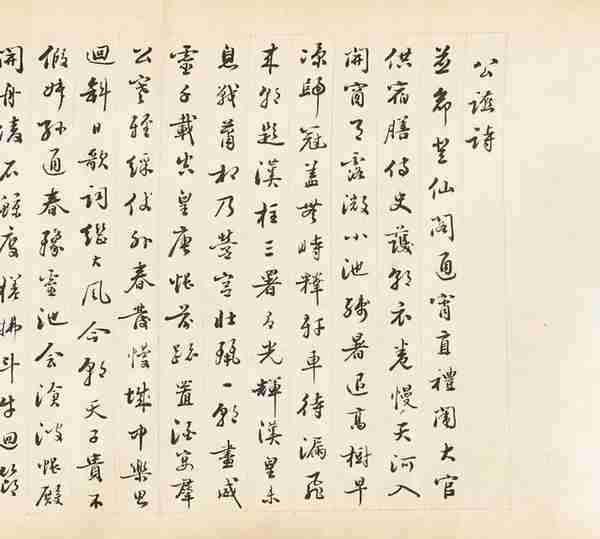 公讌詩
並命登仙閣通宵直禮闈大官
供宿膳侍史護朝衣卷幔天河入
開窗月露微小池殘暑退高樹早
涼歸冠蓋無時釋軒車待漏飛
来朝題漢柱三署有光輝漢皇未
息戰蕭相乃營宮壯麗一朝盡威
靈千載空皇唐悵前跡置酒宴群
公寒輕綵仗外春發幔城中樂思
迴斜日歌詞繼大風今朝天子貴不
假叔孫通春豫靈池會滄波帳殿
開舟凌石鯨度槎拂斗牛迴節